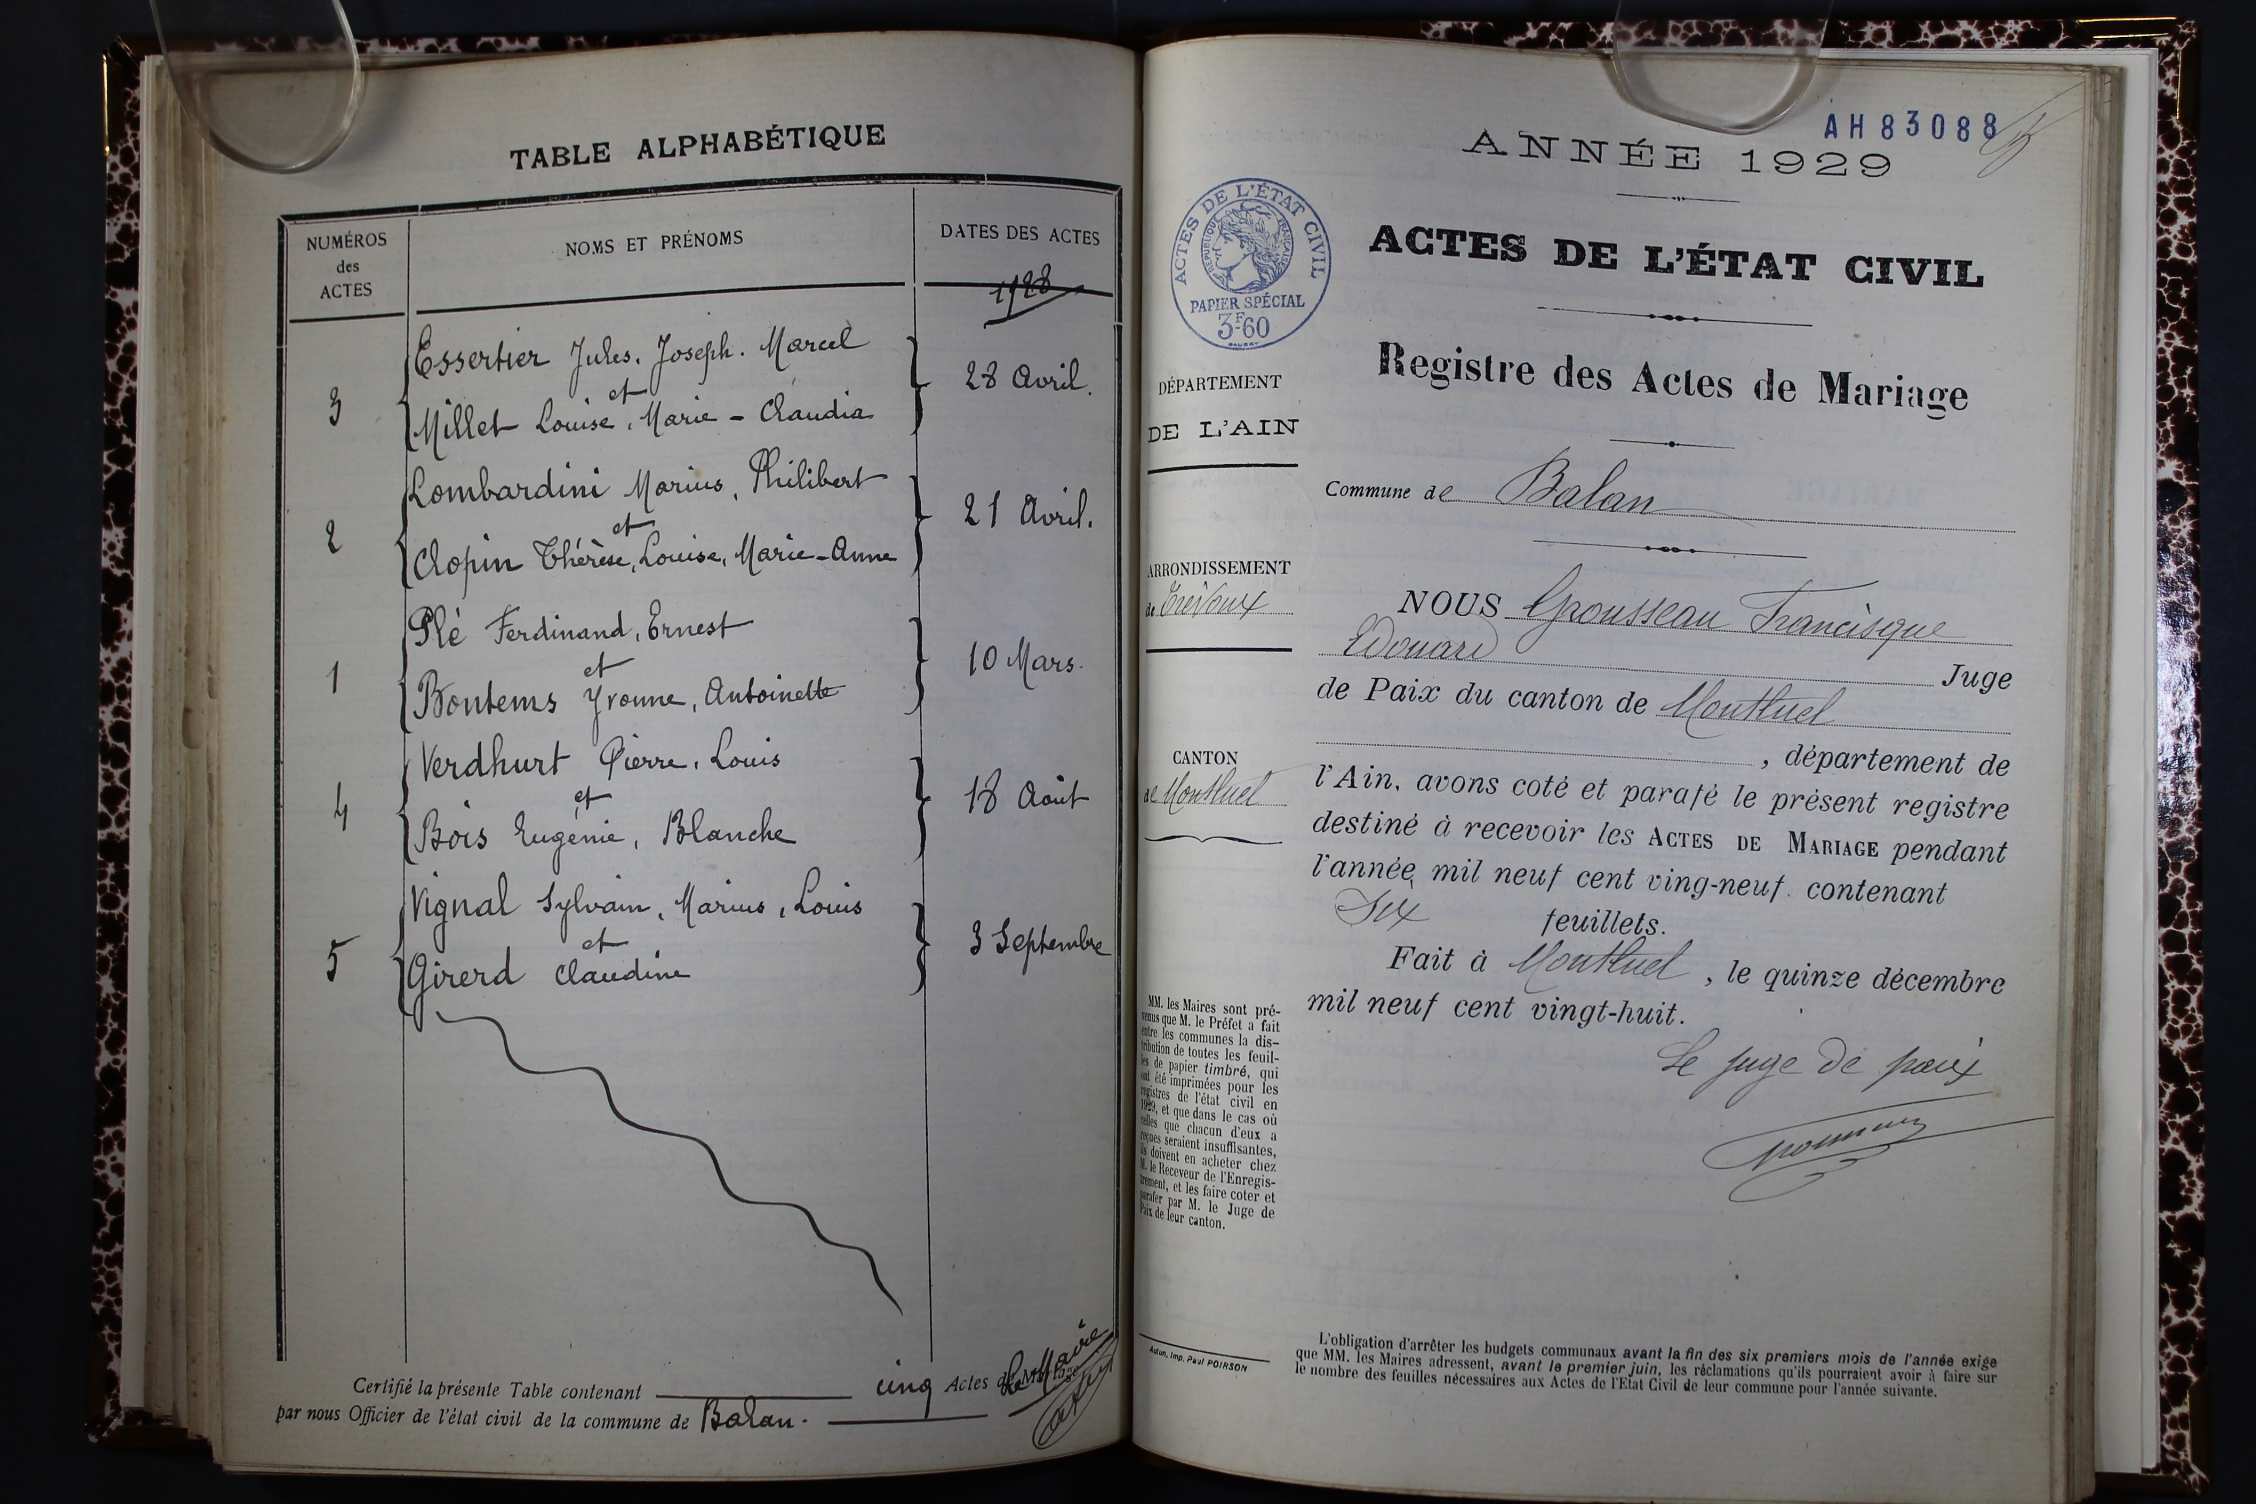 TABLE ALPHABÉTIQUE
NUMÉROS
des
ACTES
NOMS ET PRÉNOMS
DATES DES ACTES
1928
Essertier Jules, Joseph, Marcel
et
3
28 Avril.
Millet Louise, Marie - Claudia
Lombardini Marius, Philibert
et
2
21 Avril.
Clopin Thérèse, Louise, Marie-Anne
Plé Ferdinand, Ernest
et
1
10 Mars.
Bontems Yvonne, Antoinette
Verdhurt Pierre, Louis
et
4
18 Août
Bois Eugénie, Blanche
Vignal Sylvain, Marius, Louis
et
5
3 Septembre
Girerd Claudine
Certifié la présente Table contenant cinq Actes de Mariage
par nous Officier de l'état civil de la commune de Balan.
Le Maire
AH83088
ANNÉE 1929
ACTES DE L'ÉTAT CIVIL
RÉPUBLIQUE FRANÇAISE
PAPIER SPÉCIAL
3F60
ACTES DE L'ÉTAT CIVIL
Registre des Actes de Mariage
DÉPARTEMENT
DE L'AIN
Commune de Balan
ARRONDISSEMENT
de Trévoux
CANTON
de Montluel
NOUS Grousseau Francisque
Edouard Juge
de Paix du canton de Montluel
, département de
l'Ain, avons coté et parafé le présent registre
destiné à recevoir les ACTES DE MARIAGE pendant
l'année mil neuf cent ving-neuf contenant
Six feuillets.
Fait à Montluel, le quinze décembre
mil neuf cent vingt-huit.
Le juge de paix
MM. les Maires sont pré-
venus que M. le Préfet a fait
entre les communes la dis-
tribution de toutes les feuil-
les de papier timbré, qui
ont été imprimées pour les
registres de l'état civil en
1929, et que dans le cas où
celles que chacun d'eux a
reçues seraient insuffisantes,
ils doivent en acheter chez
M. le Receveur de l'Enregis-
trement, et les faire coter et
parafer par M. le Juge de
Paix de leur canton.
Autun, Imp. Paul POIRSON
L'obligation d'arrêter les budgets communaux avant la fin des six premiers mois de l'année exige
que MM. les Maires adressent, avant le premier juin, les réclamations qu'ils pourraient avoir à faire sur
le nombre des feuilles nécessaires aux Actes de l'Etat Civil de leur commune pour l'année suivante.